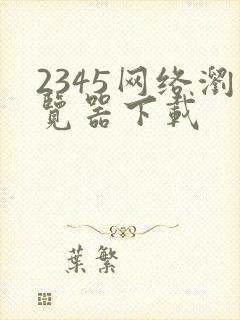 2345网络瀏
覽器下載
葉繁